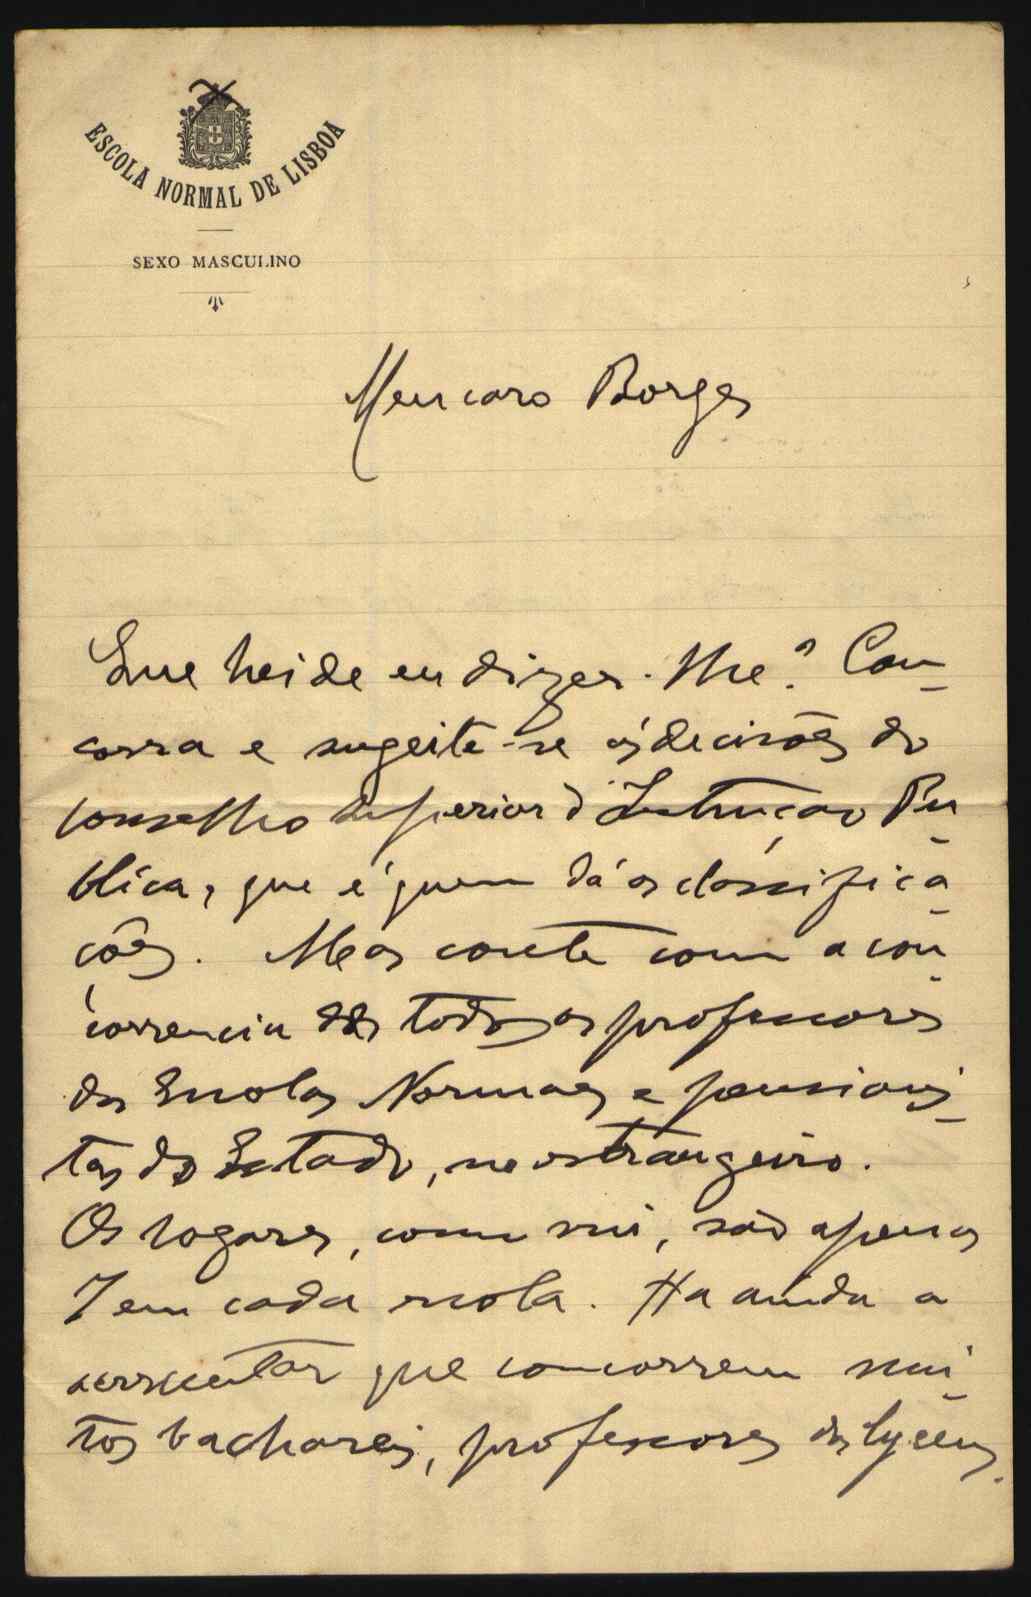 ESCOLA NORMAL DE LISBOA
SEXO MASCULINO
Meu caro Borges
Que heide eu dizer-lhe? Con-
corra e sugeite-se ás decisões do
Conselho Superior d'Instrução Pu-
blica, que é quem dá as classifica-
ções. Mas conte com a con-
correncia de todos os professores
das Escolas Normaes e pensionis-
tas do Estado, no estrangeiro.
Os logares, como viu, são apenas
7 em cada escola. Ha ainda a
acrescentar que concorrem mui-
tos bachareis, professores dos lyceus,